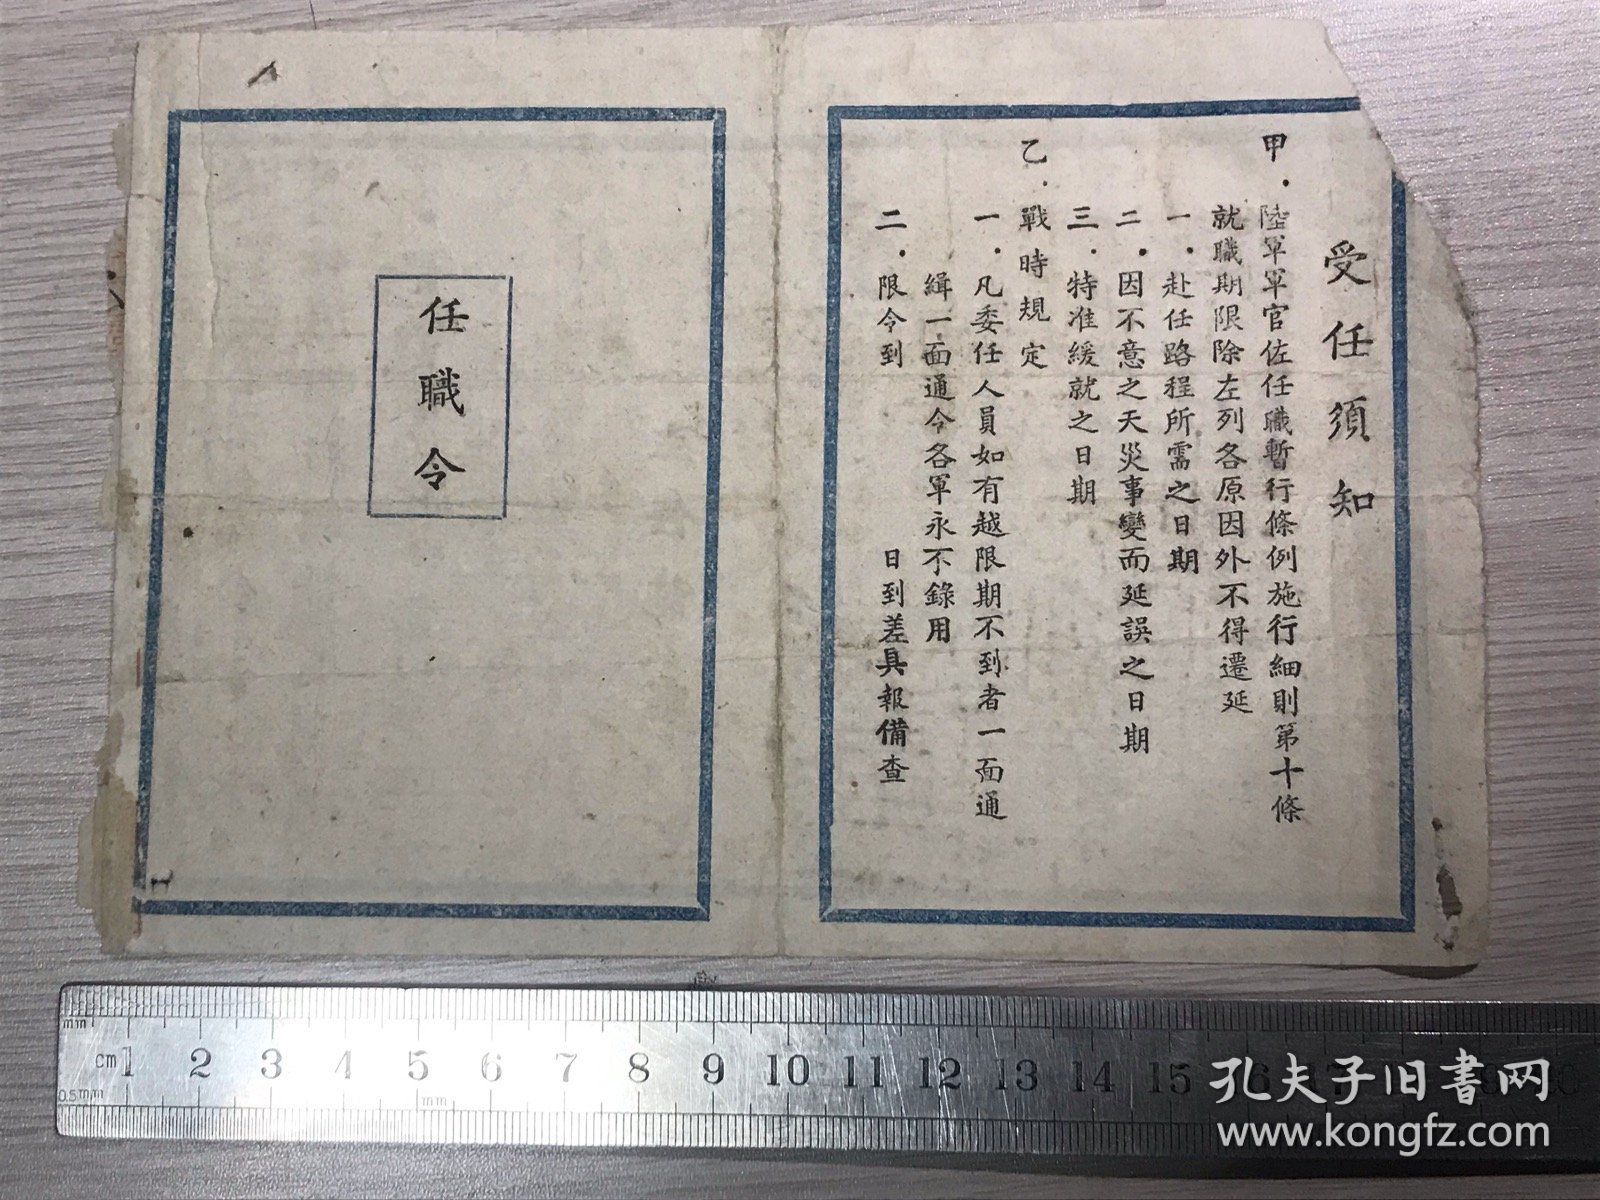 受任須知
甲．陸軍軍官佐任職暫行條例施行細則第十條
就職期限除左列各原因外不得遷延
一．赴任路程所需之日期
二．因不意之天災事變而延誤之日期
三．特准緩就之日期
乙．戰時規定
一．凡委任人員如有越限期不到者一面通
緝一面通令各軍永不錄用
二．限令到　　　日到差具報備查
任職令
mm
cm 1 2 3 4 5 6 7 8 9 10 11 12 13 14 15
0.5mm
mm
孔夫子旧書网
www.kongfz.com